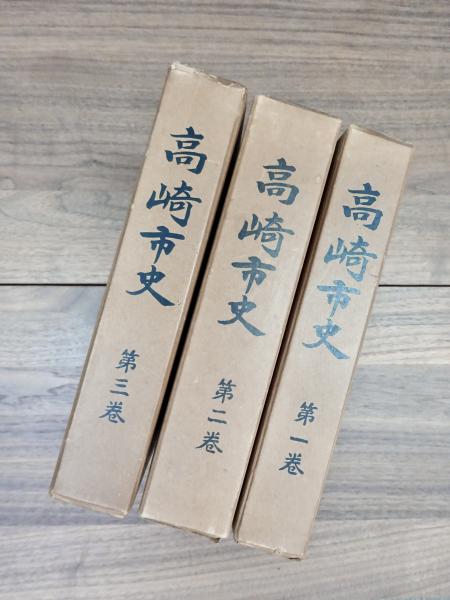 高崎市史
第三巻
高崎市史
第二巻
高崎市史
第一巻